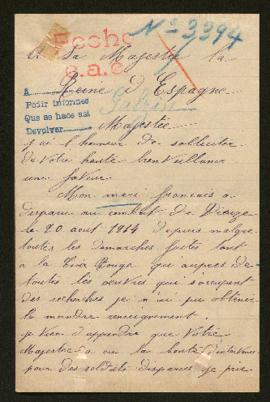 Fecho
Nº 3394
c.a.c
A Sa Majesté la
Reine d'Espagne
A
Pedir informes
Que se haga
Devolver
Majestée
j'ai l'honneur de solliciter
de votre haute bienveillance
une faveur
Mon mari français a
disparu au combat de Dieuze
le 20 aout 1914 depuis malgré
toutes les demarches faites tant
a la Croix Rouge que aupres de
toutes les œuvres qui s'occupent
des recherches je n'ai pu obtenir
le moindre renseignement.
je viens d'apprendre que Votre
Majestée a eu la bonté
pour des soldats disparus je